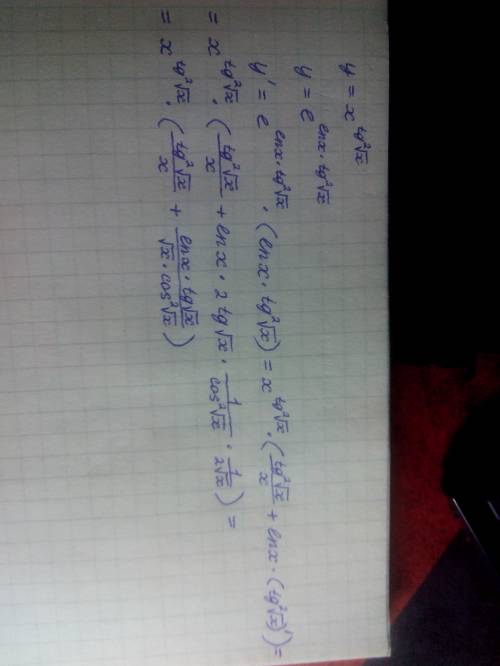 y = x^{tg²√x}
y = e^{lnx · tg²√x}
y' = e^{lnx · tg²√x} · (lnx · tg²√x) = x^{tg²√x} · (tg²√x / x + lnx · (tg²√x)') =
= x^{tg²√x} · (tg²√x / x + lnx · 2 tg√x · 1 / cos²√x · 1 / 2√x) =
= x^{tg²√x} · (tg²√x / x + lnx · tg√x / √x · cos²√x)